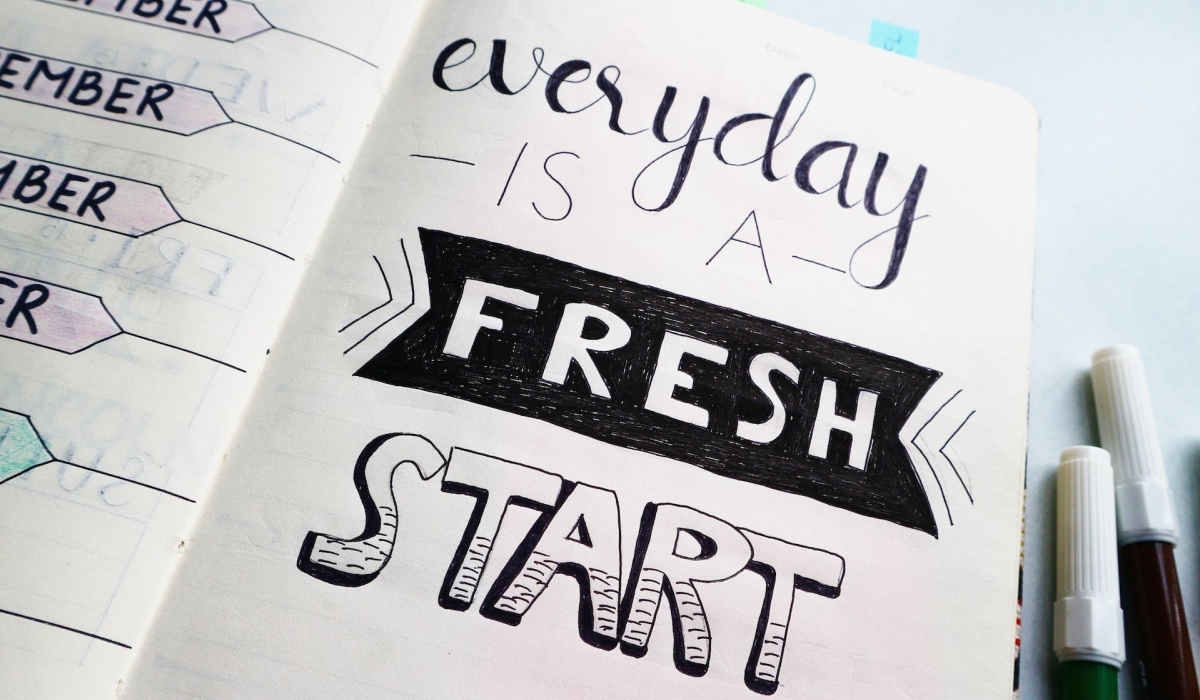 EMBER
EMBER
MBER
ER
everyday
– IS A –
FRESH
START